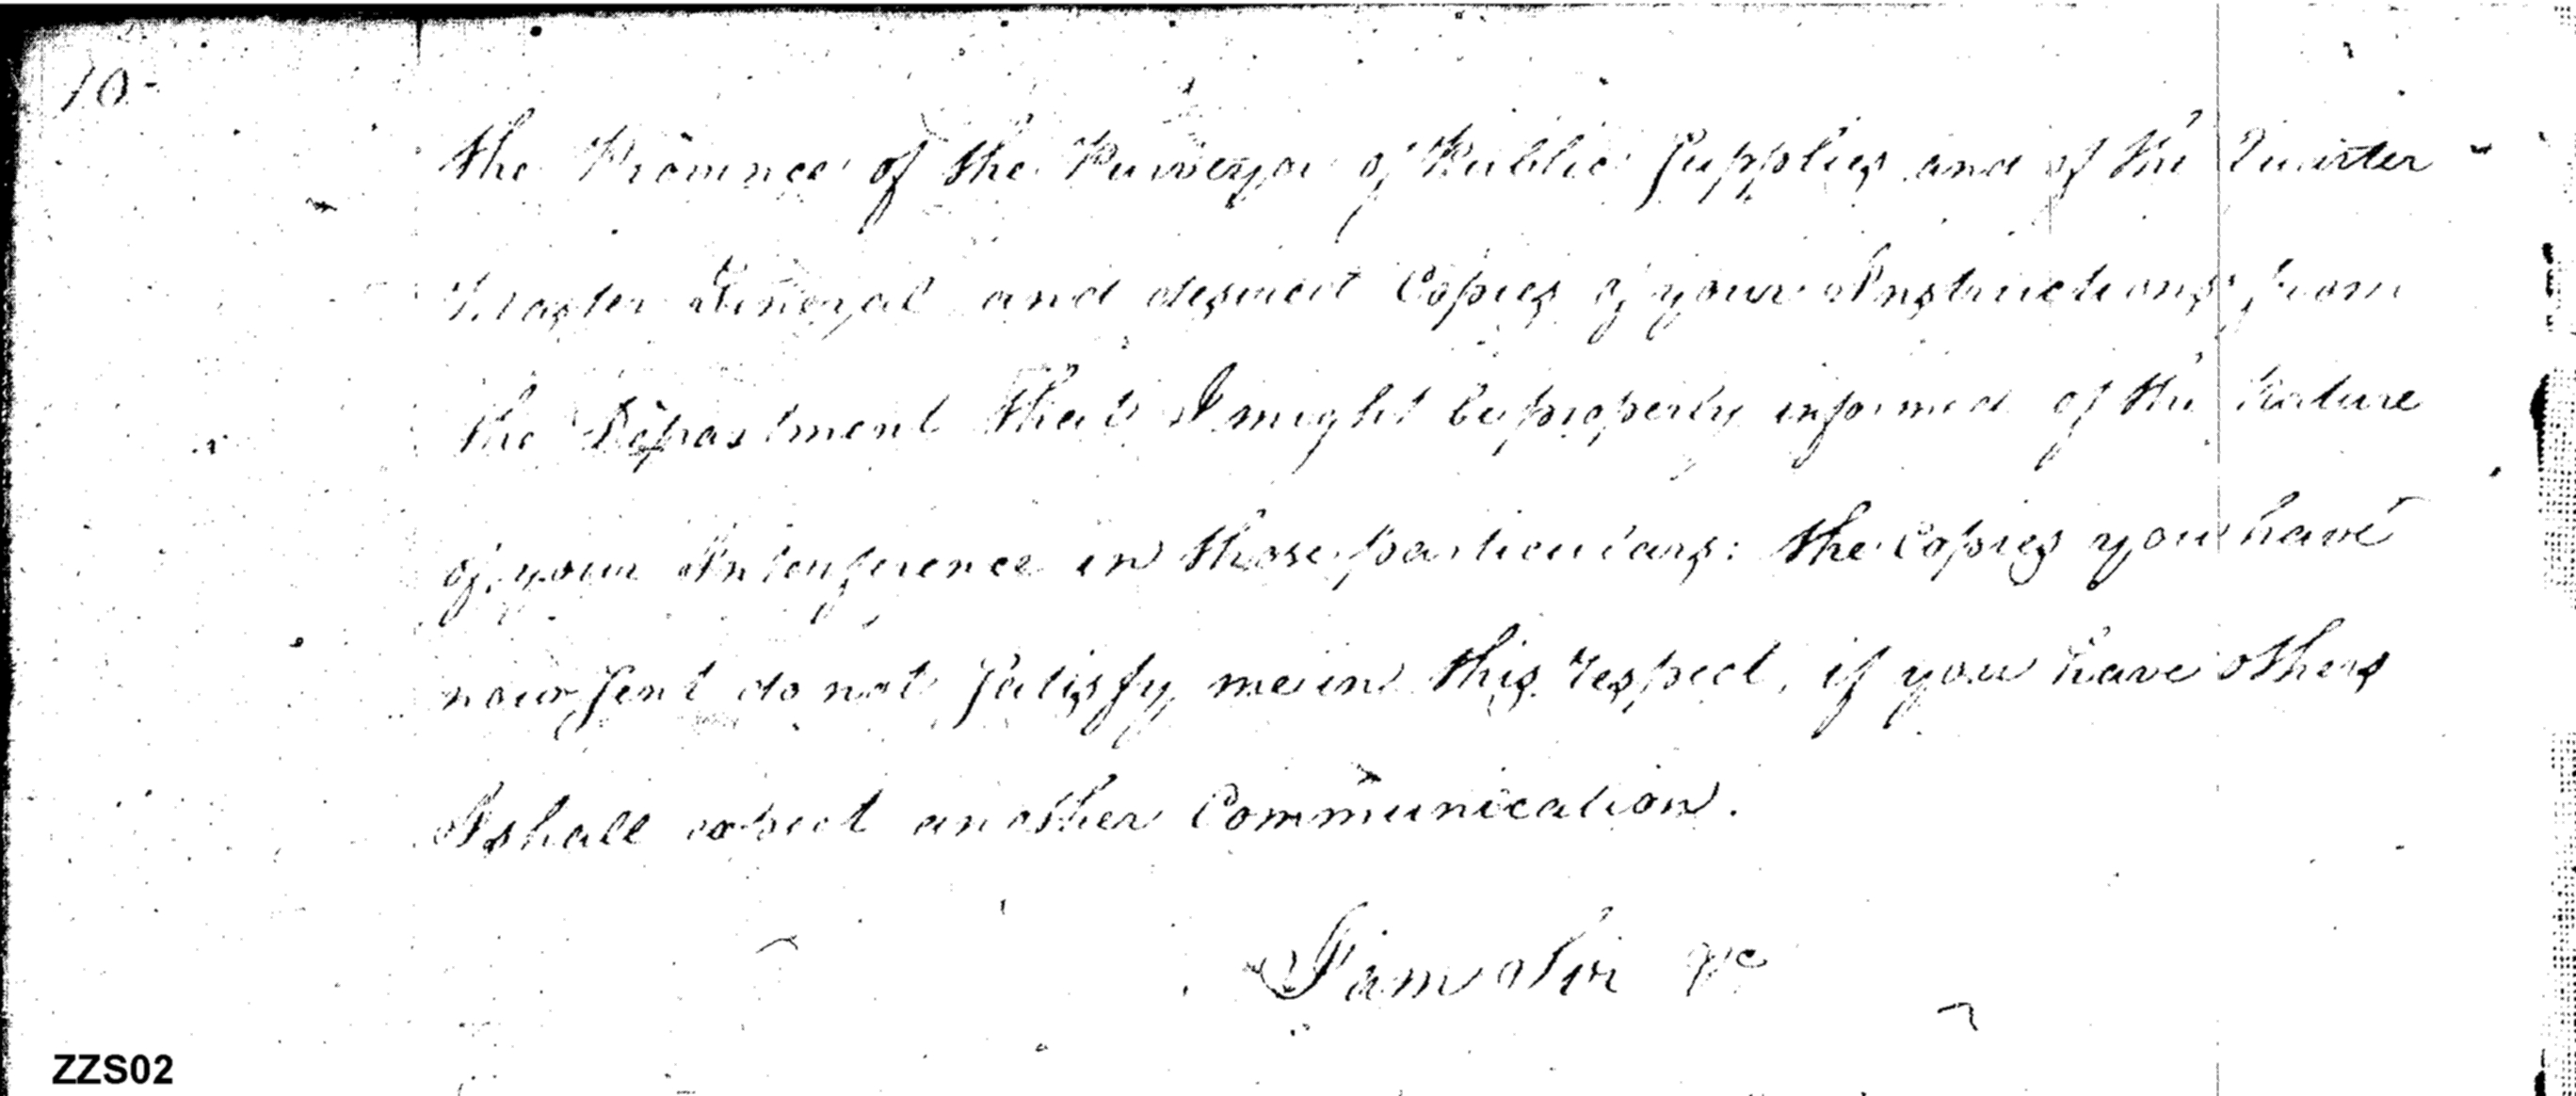 10-
the Province of the Purveyor of Public Supplies and of the Quarter-
Master General and desired Copies of your Instructions from
the Department that I might be properly informed of the Nature
of your Interference in those particulars: the Copies you have
now sent do not satisfy me in this respect, if you have others
I shall expect another Communication.
I am Sir &c
ZZS02